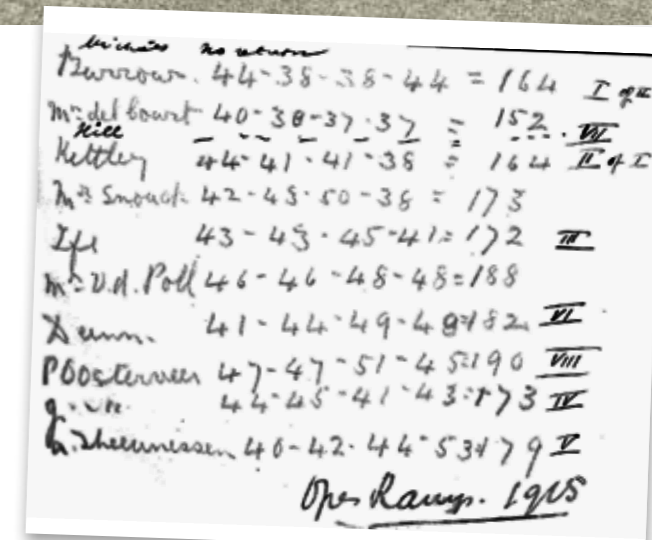 no return
Burrows. 44-38-38-44 = 164 I of II
Mr. del Court 40-38-37-37 = 152. VII
Hill
Kettley 44-41-41-38 = 164 II of I
Mr. Snouck 42-43-50-38 = 173
Ife 43-43-45-41= 172 III
Mr. v.d. Poll 46-46-48-48=188
Dunn. 41-44-49-48=182. VI
P Oosterveer 47-47-51-45=190 VIII
44-45-41-43=173 IV
G. Theunessen 40-42-44-53=179 V
Open Kamp. 1915